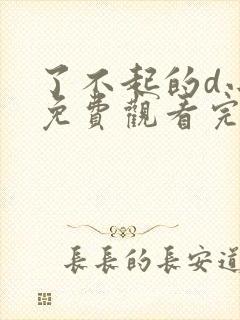 了不起的d.
免費觀看完
長長的長安道